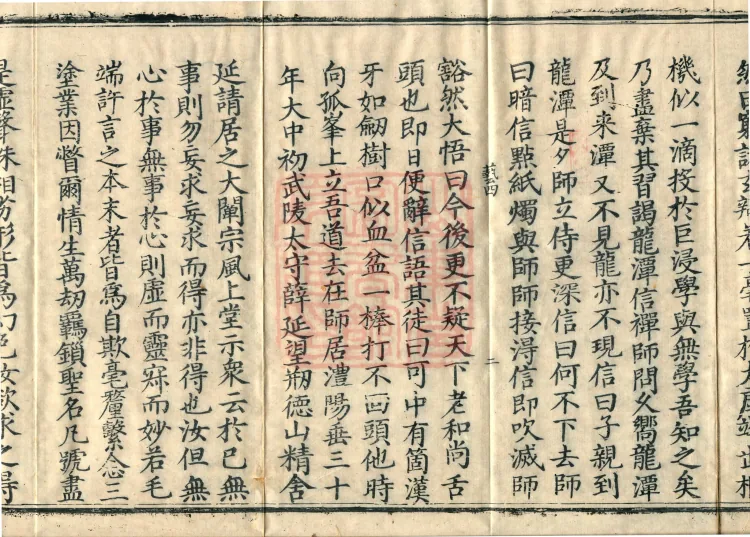 機似一滴投於巨浸學與無學吾知之矣
乃盡棄其習謁龍潭信禪師問久嚮龍潭
及到来潭又不見龍亦不現信曰子親到
龍潭是夕師立侍更深信曰何不下去師
曰暗信點紙燭與師師接淂信即吹滅師
二
豁然大悟曰今後更不疑天下老和尚舌
頭也即日便辭信語其徒曰可中有箇漢
牙如劒樹口似血盆一棒打不回頭他時
向孤峯上立吾道去在師居澧陽垂三十
年大中初武陵太守薛延望剏徳山精舍
延請居之大闡宗風上堂示衆云於已無
事則勿妄求妄求而得亦非得也汝但無
心於事無事於心則虛而靈寂而妙若毛
端許言之本末者皆爲自欺毫釐繫念三
塗業因瞥爾情生萬劫羈鎖聖名凡號盡
是虛聲殊相劣形皆爲幻色汝欲求之得